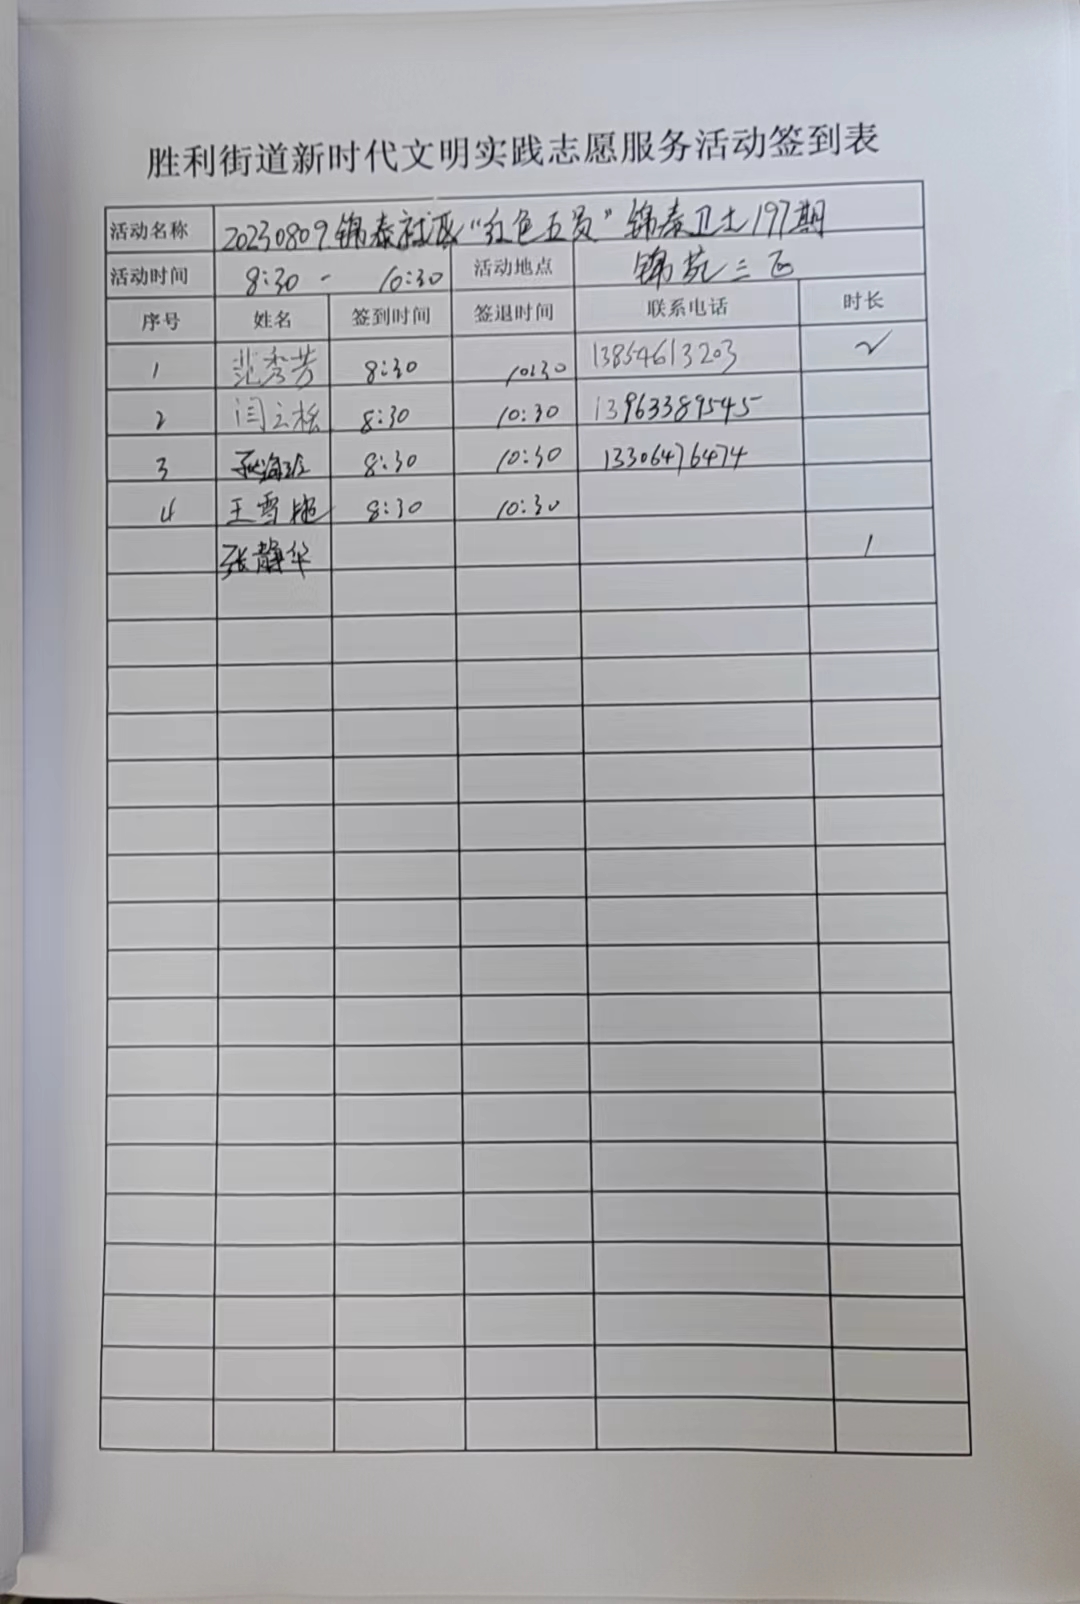 胜利街道新时代文明实践志愿服务活动签到表
活动名称 20230809锦泰社区“红色五员”锦泰卫士197期
活动时间 8:30 - 10:30 活动地点 锦苑三区
序号 姓名 签到时间 签退时间 联系电话 时长
1 范秀芳 8:30 10:30 13854613203 2
2 闫立 8:30 10:30 13963389545
3 8:30 10:30 13306476474
4 王雪艳 8:30 10:30
张静华 1